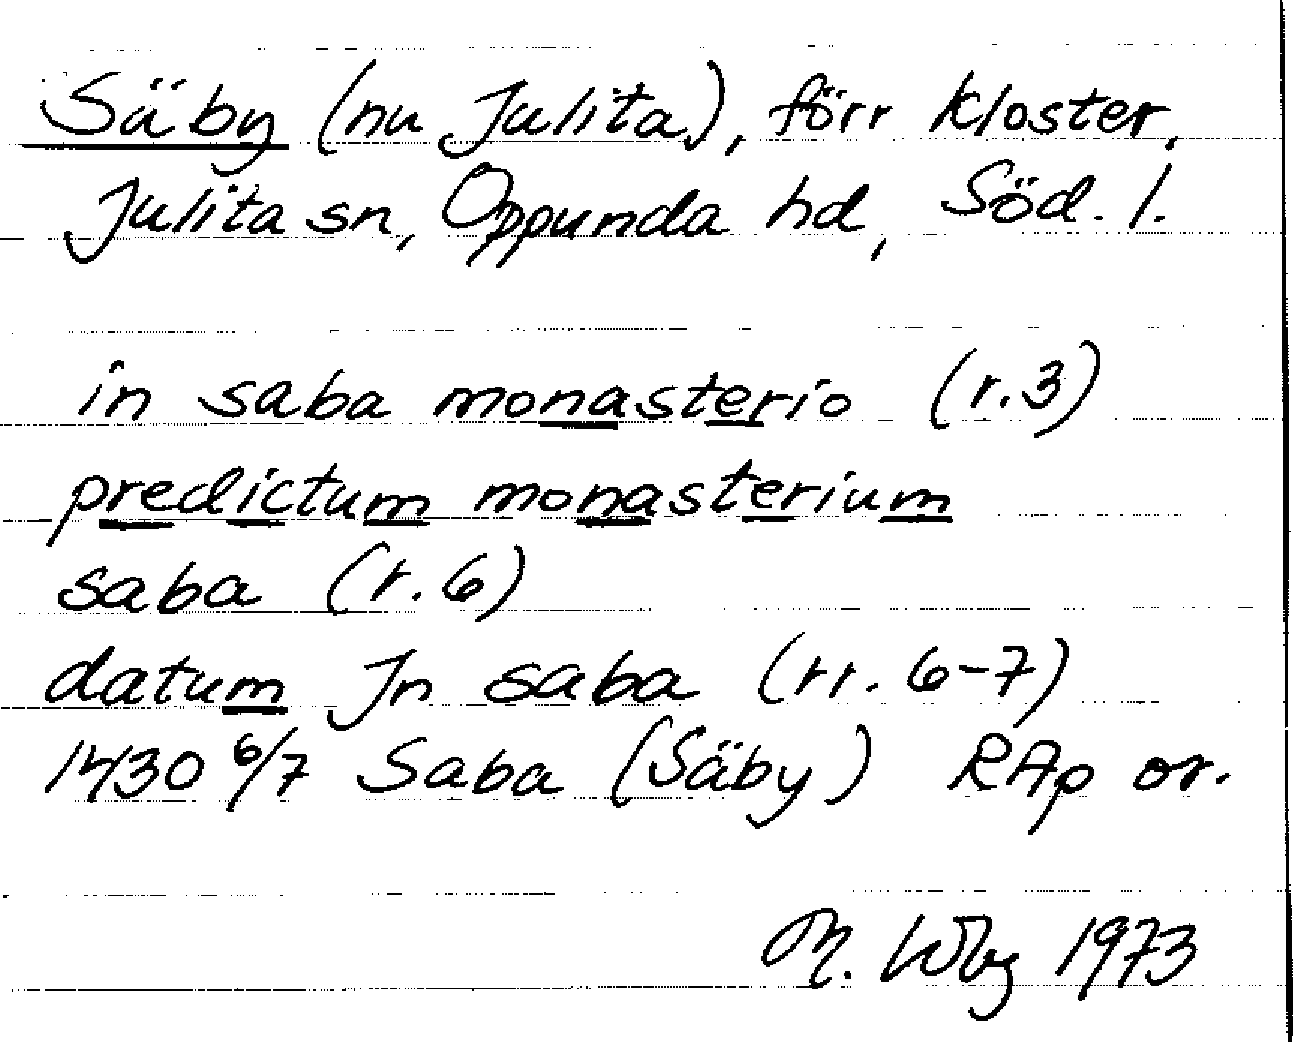 Säby (nu Julita), förr kloster,
Julita sn, Oppunda hd, Söd. l.
in saba monasterio (r.3)
predictum monasterium
saba (r.6)
datum Jn saba (rr. 6-7)
1430 6/7 Saba (Säby) RAp or.
M. Wbg 1973